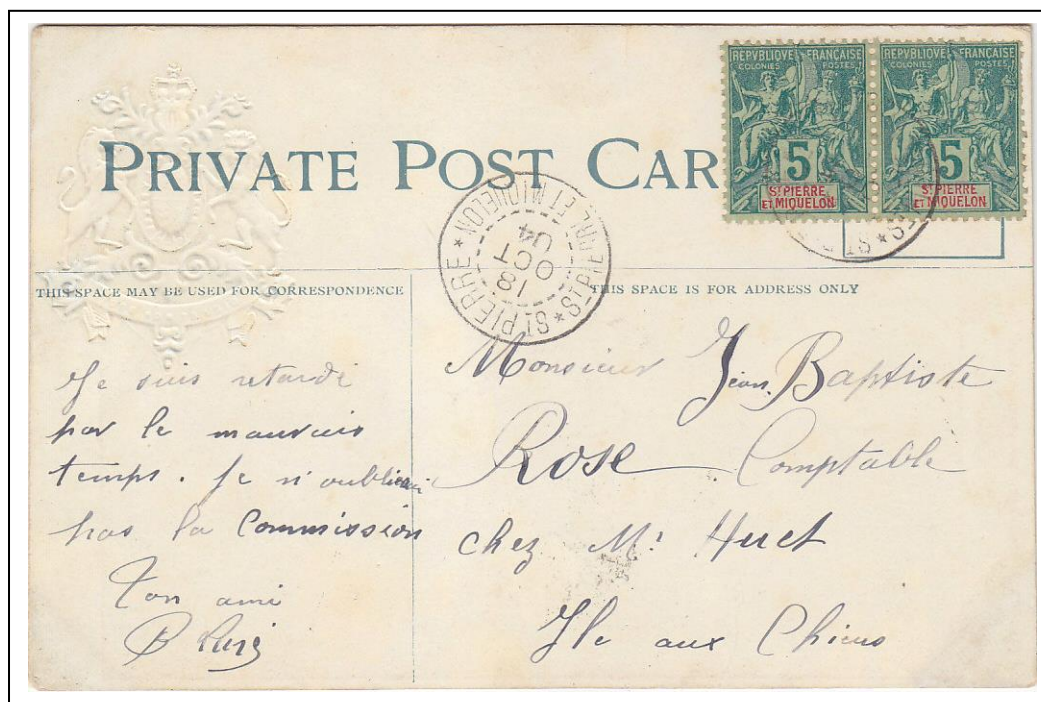 PRIVATE POST CAR
REPVBLIQVE FRANÇAISE
COLONIES POSTES
5
ST PIERRE
ET MIQUELON
REPVBLIQVE FRANÇAISE
COLONIES POSTES
5
ST PIERRE
ET MIQUELON
ST PIERRE ET MIQUELON * ST PIERRE *
18
OCT
04
THIS SPACE MAY BE USED FOR CORRESPONDENCE
THIS SPACE IS FOR ADDRESS ONLY
Je suis retardé
par le mauvais
temps. Je n'oublierai
pas la Commission
Ton ami
Monsieur Jean Baptiste
Rose Comptable
chez Mr Huet
Ile aux Chiens